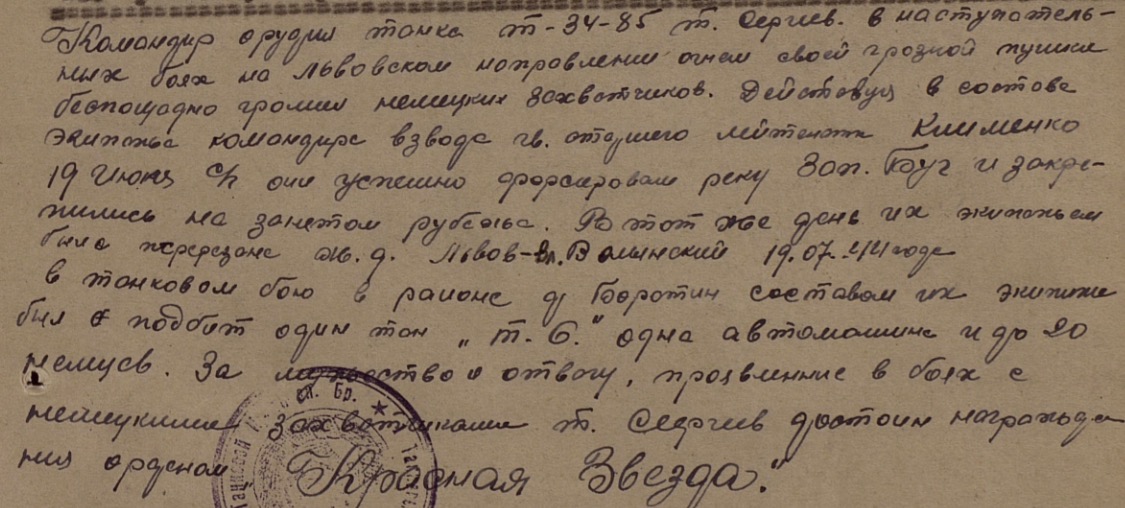 Командир орудия танка Т-34-85 т. Сергиев. в наступатель-
ных боях на Львовском направлении огнем своей грозной пушки
беспощадно громил немецких захватчиков. Действуя в составе
экипажа командира взвода гв. старшего лейтенанта Клименко
19 июля с/г они успешно форсировали реку Зап. Буг и закре-
пились на занетом рубеже. В тот же день их экипажем
была перерезана ж. д. Львов-Вл. Волынский 19.07.44 года
в танковом бою в районе д Боротин составом их экипажа
был подбит один тан „Т. 6." одна автомашина и до 20
немцев. За мужество и отвагу, проявленние в боях с
немецкими захватчиками т. Сергиев достоин награжде
ния орденом "Красная Звезда."
сп. Бр.
Танковой